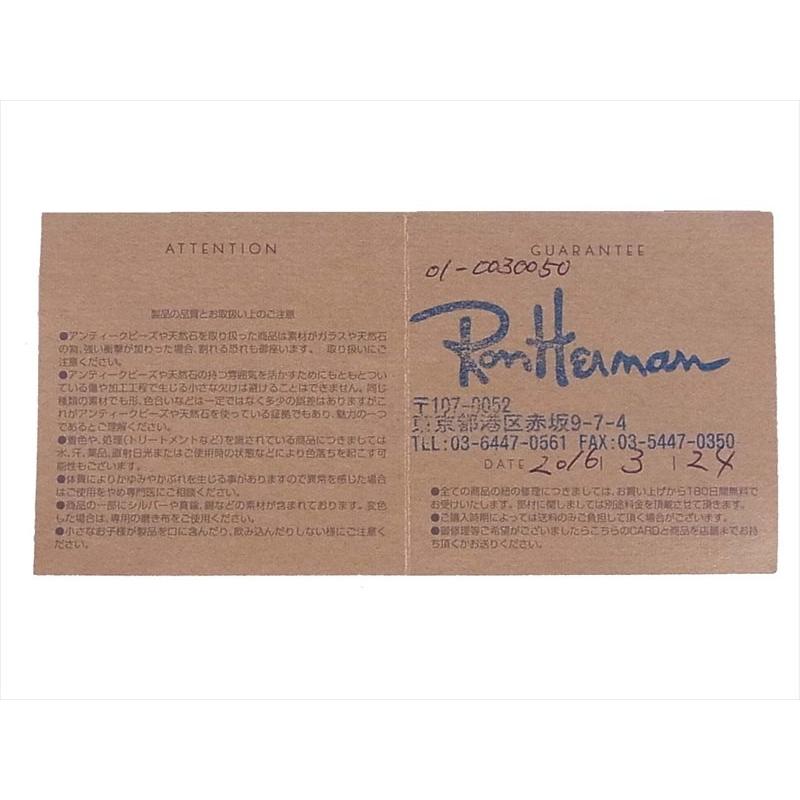 ATTENTION
製品の品質とお取扱い上のご注意
●アンティークビーズや天然石を取り扱った商品は素材がガラスや天然石
の為、強い衝撃が加わった場合、割れる恐れも御座います。 取り扱いにご
注意ください。
●アンティークビーズや天然石の持つ雰囲気を活かすためにもともとつい
ている傷や加工工程で生じる小さな欠けは避けることはできません。同じ
種類の素材でも形、色合いなどは一定ではなく多少の誤差はありますがこ
れがアンティークビーズや天然石を使っている証拠でもあり、魅力の一つ
であるとご理解ください。
●着色や、処理(トリートメントなど)を施されている商品につきましては
水、汗、薬品、直射日光またはご使用時の状態などにより色落ちを起こす可
能性もございます。
●体質によりかゆみやかぶれを生じる事がありますので異常を感じた場合
はご使用をやめ専門医にご相談ください。
●商品の一部にシルバーや真鍮、銅などの素材が含まれております。変色
した場合は、専用の磨き布をご使用ください。
●小さなお子様が製品を口に含んだり、飲み込んだりしない様にご注意く
ださい。
GUARANTEE
01-0030050
Ron Herman
〒107-0052
東京都港区赤坂9-7-4
TEL:03-6447-0561 FAX:03-5447-0350
DATE 2016 | 3 | 24
●全ての商品の紐の修理につきましては、お買い上げから180日間無料で
お受けいたします。部材に関しましては別途料金を頂戴させて頂きます。
●ご購入時期によっては送料のみご負担して頂く場合がございます。
●御修理等ご希望がございましたらこちらのCARDと商品を店舗までお持
ち頂くかお送りください。